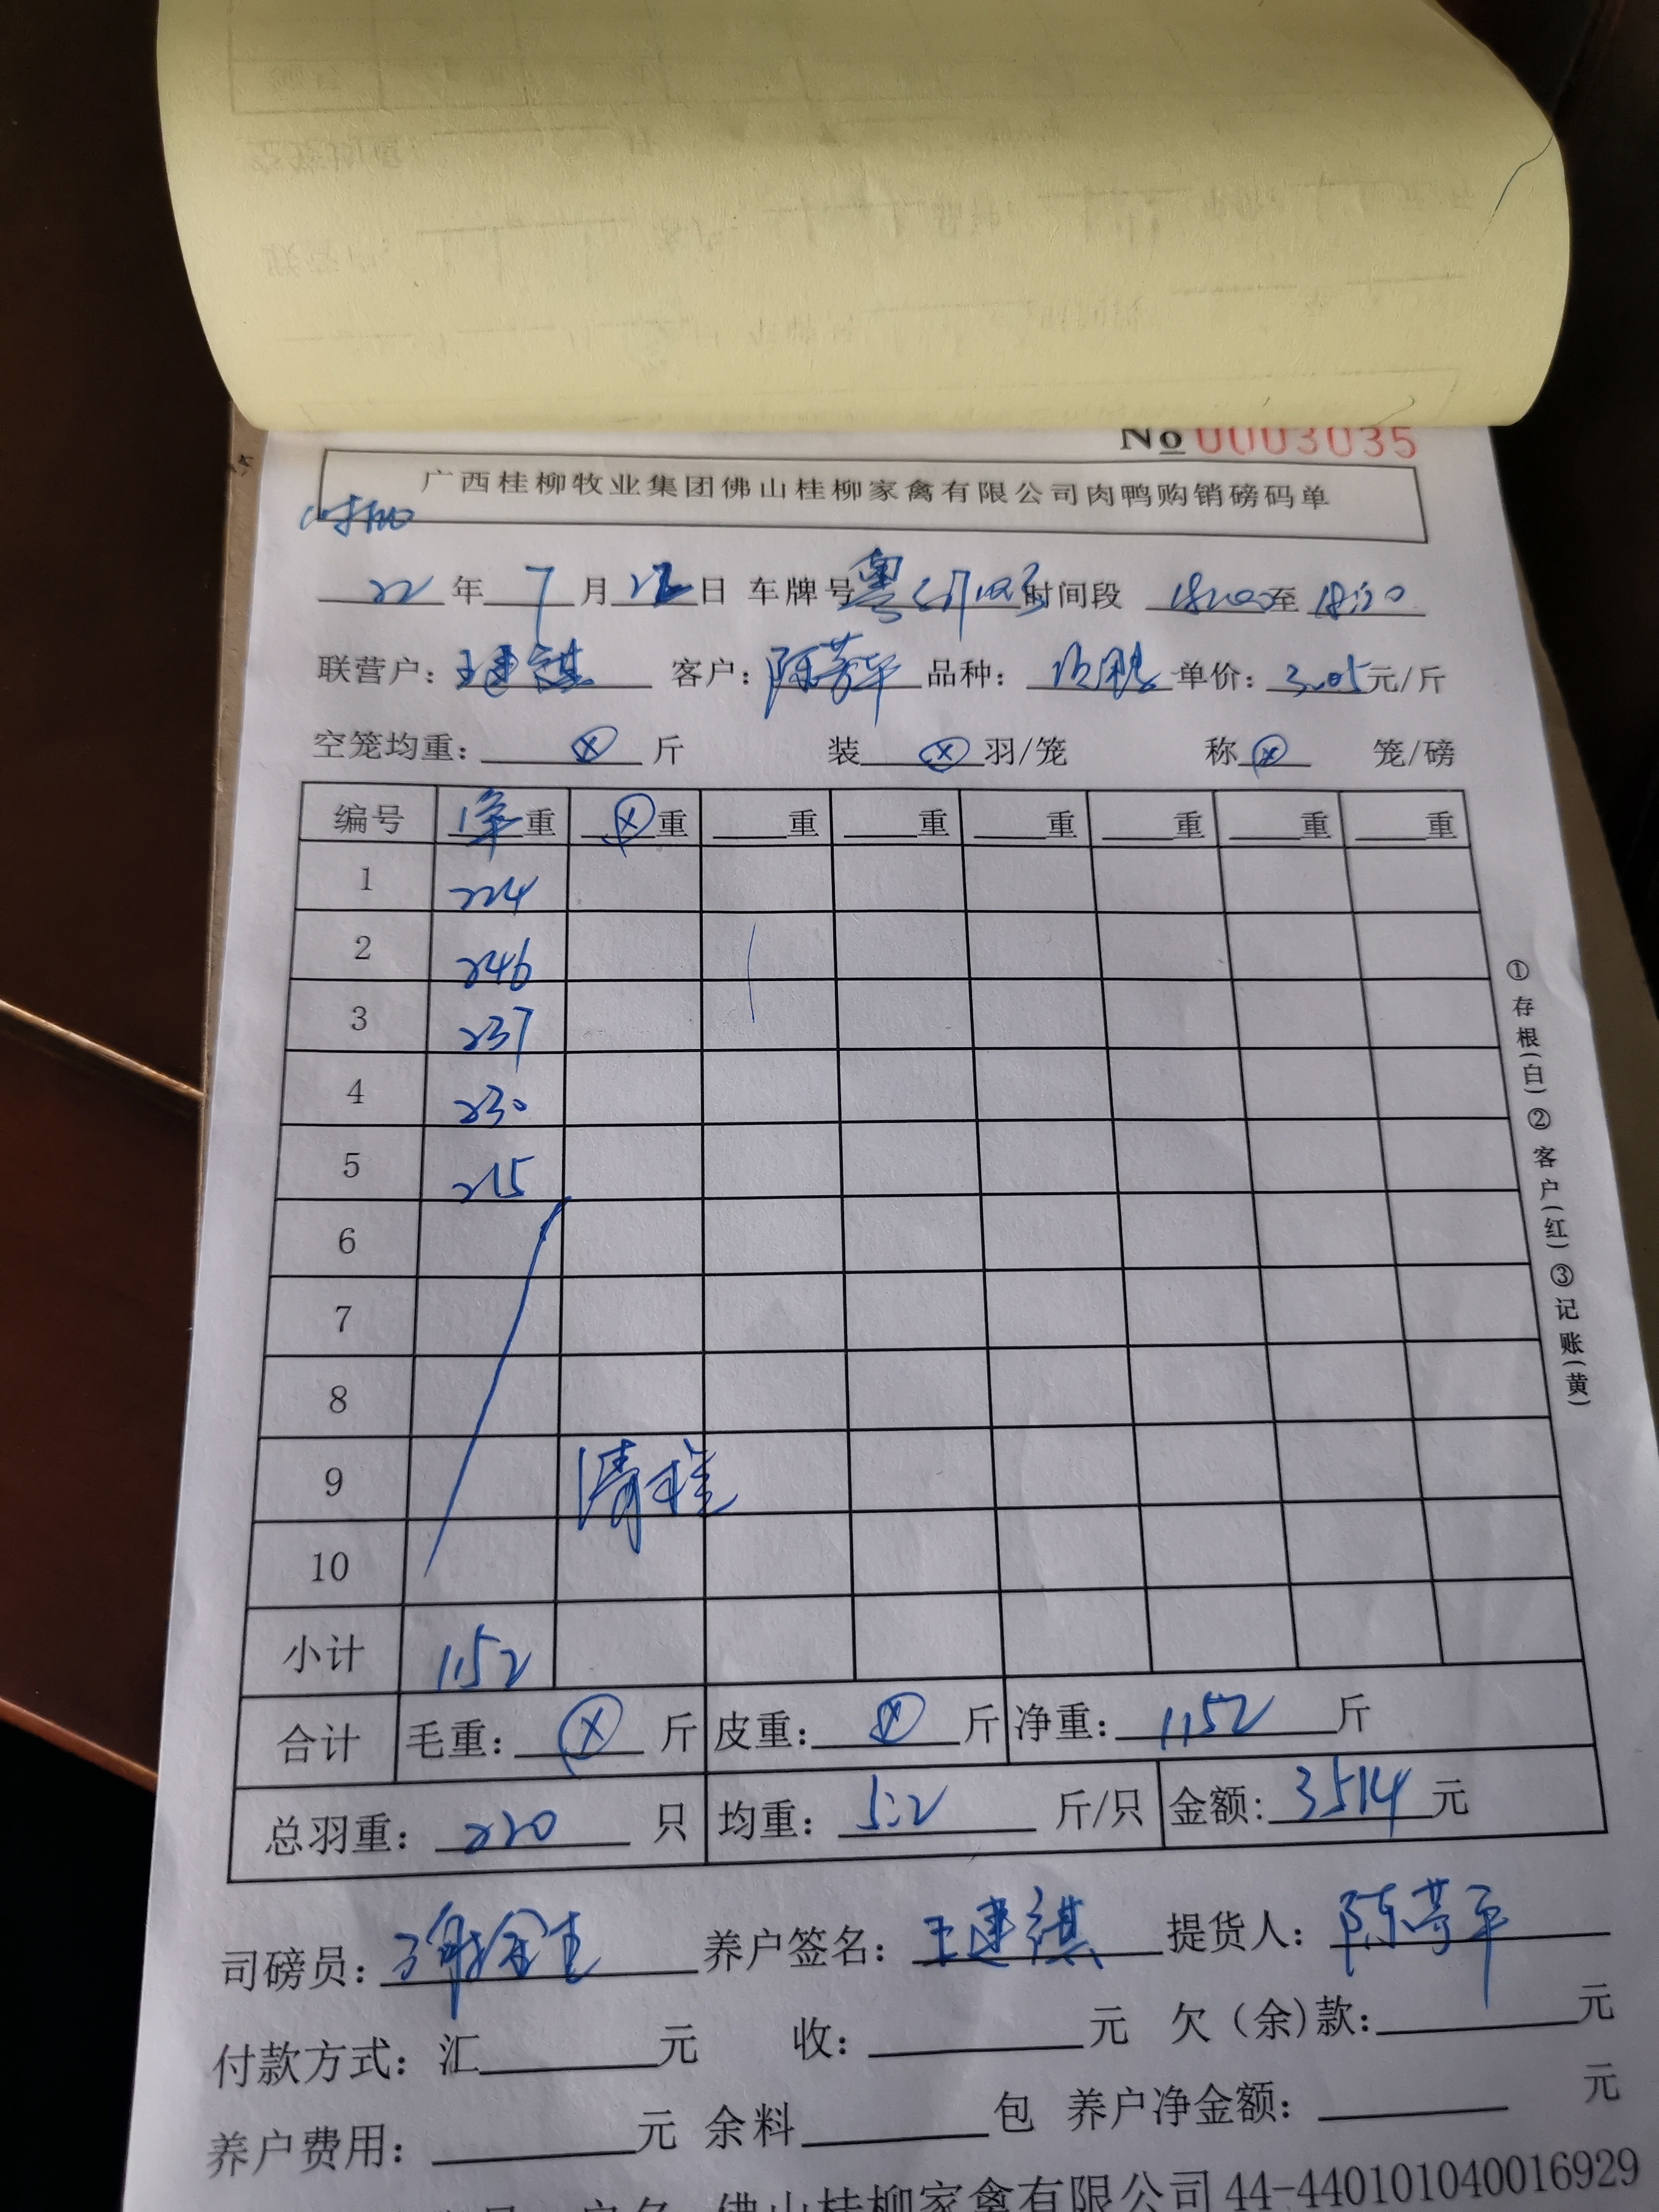 No 0003035
广西桂柳牧业集团佛山桂柳家禽有限公司肉鸭购销磅码单
22年7月日 车牌号粤 时间段 至
联营户：王建祺 客户：陈芳平 品种： 单价：3.05元/斤
空笼均重：ⓧ斤 装ⓧ羽/笼 称ⓧ笼/磅
编号 净重 ⓧ重 重 重 重 重 重 重
1 224
2 246
3 237
4 230
5 215
6
7
8
9 清栏
10
小计 1152
合计 毛重：ⓧ斤 皮重：ⓧ斤 净重：1152斤
总羽重：220只 均重：5.2斤/只 金额：3514元
司磅员：谢 养户签名：王建祺 提货人：陈芳平
付款方式：汇 元 收： 元 欠（余）款： 元
养户费用： 元 余料 包 养户净金额： 元
佛山桂柳家禽有限公司44-440101040016929
①存根(白)②客户(红)③记账(黄)